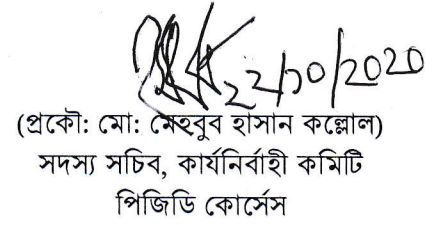 22/10/2020
(প্রকৌ: মো: মেহবুব হাসান কল্লোল)
সদস্য সচিব, কার্যনির্বাহী কমিটি
পিজিডি কোর্সেস